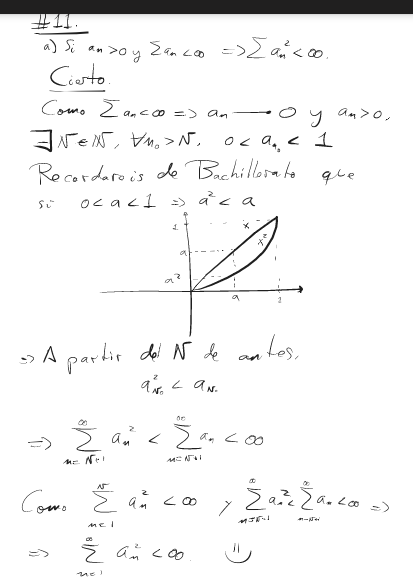 #11.
a) Si an>0 y Σan<∞ => Σan²<∞.
Cierto.
Como Σan<∞ => an → 0 y an>0,
∃N∈ℕ, ∀n₀>N, 0<an₀<1
Recordarois de Bachillerato que
si 0<a<1 => a²<a
1
x
x²
a
a²
a
1
=> A partir del N de antes,
a²n₀ < an₀
=> Σ∞n=N+1 an² < Σ∞n=N+1 an < ∞
Como ΣNn=1 an² < ∞ y Σ∞n=N+1 an² < Σ∞n=N+1 an < ∞ =>
=> Σ∞n=1 an² < ∞